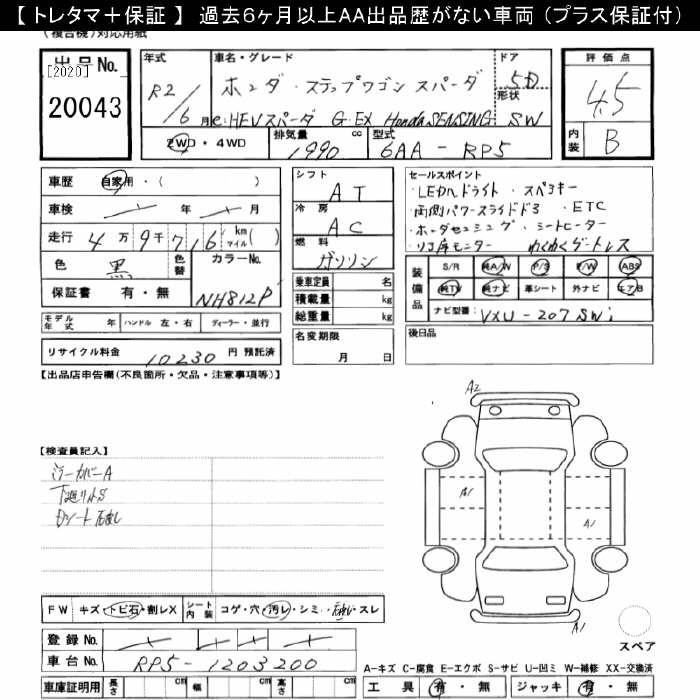 【 トレタマ＋保証 】 過去6ヶ月以上AA出品歴がない車両（プラス保証付）
(複合機)対応用紙
出品No. [2020] 20043
年式 R2/6月
車名・グレード ホンダ・ステップワゴンスパーダ
e:HEVスパーダ G・EX Honda SENSING
ドア 5D
形状 SW
評価点 4.5
内装 B
2WD・4WD
排気量 1990 cc
型式 6AA-RP5
車歴 自家用・( )
車検 年 月
走行 4万9千716 km マイル( )
色 黒 色替 カラーNo. NH812P
保証書 有・無
モデル年式 年 ハンドル 左・右 ディーラー・並行
リサイクル料金 10230 円 預託済
シフト AT
冷房 AC
燃料 ガソリン
乗車定員 名
積載量 kg
総重量 kg
名変期限 月 日
セールスポイント
・LEDヘッドライト ・スペアキー
・両側パワースライドドア ・ETC
・ホンダセンシング ・シートヒーター
・リヤ席モニター わくわくゲートレス
装備品 S/R 純A/W P/S P/W ABS
純TV 純ナビ 革シート 外ナビ エアB
ナビ型番 VXU-207SWi
後日品
【出品店申告欄(不良箇所・欠品・注意事項等)】
【検査員記入】
ミラーカバーA
下廻りサビS
A2
A1
A1
A1
FW キズ・トビ石・割レX シート内装 コゲ・穴・汚レ・シミ・ ・スレ
登録No.
車台No. RP5-1203200
車庫証明用 長さ cm 幅 cm 高さ cm
スペア
A-キズ C-腐食 E-エクボ S-サビ U-凹ミ W-補修 XX-交換済
工具 有・無 ジャッキ 有・無